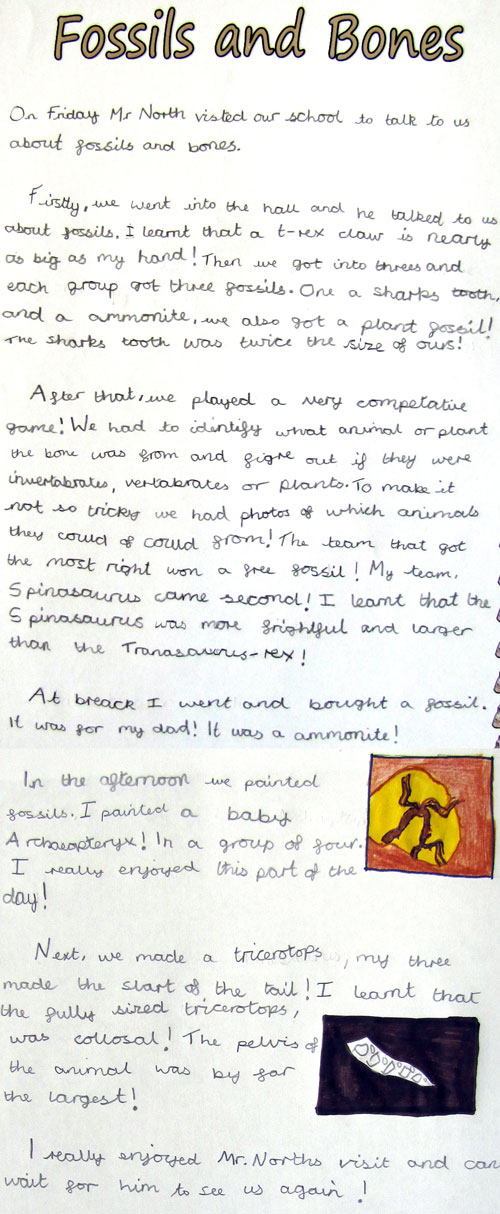 Fossils and Bones
On Friday Mr North visted our school to talk to us
about fossils and bones.
Firstly, we went into the hall and he talked to us
about fossils. I learnt that a t-rex claw is nearly
as big as my hand! Then we got into threes and
each group got three fossils. One a sharks tooth,
and a ammonite, we also got a plant fossil!
The sharks tooth was twice the size of ours!
After that, we played a very competative
game! We had to idintify what animal or plant
the bone was from and figre out if they were
invertabrates, vertabrates or plants. To make it
not so tricky we had photos of which animals
they could of could from! The team that got
the most right won a free fossil! My team,
Spinasaurus came second! I learnt that the
Spinasaurus was more frightful and larger
than the Tranasaurus-rex!
At breack I went and bought a fossil.
It was for my dad! It was a ammonite!
In the afternoon we painted
fossils. I painted a baby
Archaeopteryx! In a group of four.
I really enjoyed this part of the
day!
Next, we made a tricerotops, my three
made the start of the tail! I learnt that
the fully sized tricerotops,
was collosal! The pelvis of
the animal was by far
the largest!
I really enjoyed Mr.Norths visit and can
wait for him to see us again!